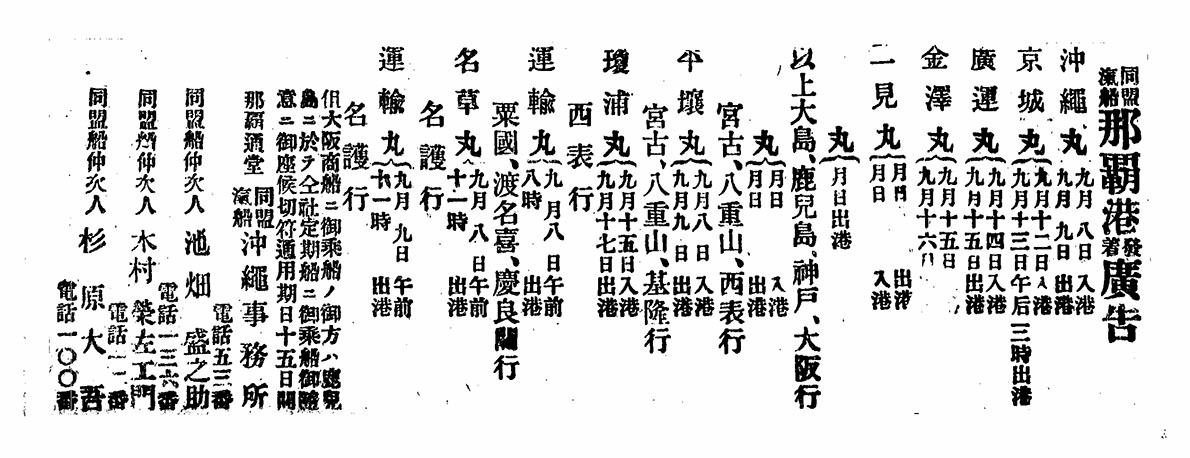 同盟汽船那覇港發着廣告
沖繩丸 九月八日入港 九月九日出港
京城丸 九月十二日入港 九月十三日午后三時出港
廣運丸 九月十四日入港 九月十五日出港
金澤丸 九月十五日 九月十六日
二見丸 月日入港 月日出港
丸 月日出港
以上大島、鹿兒島、神戸、大阪行
丸 月日入港 月日出港
宮古、八重山、西表行
平壤丸 九月八日入港 九月九日出港
宮古、八重山、基隆行
瓊浦丸 九月十五日入港 九月十七日出港
西表行
運輸丸 九月八日午前八時出港
粟國、渡名喜、慶良間行
名草丸 九月八日午前十一時出港
名護行
運輸丸 九月九日午前十一時出港
名護行
但大阪商船ニ御乘船ノ御方ハ鹿兒
島ニ於テ仝社定期船ニ御乘船御隨
意ニ御座候切符通用期日十五日間
那覇通堂 同盟汽船沖繩事務所
電話五三番
同盟船仲次人 池畑盛之助
電話一三六番
同盟船仲次人 木村榮左工門
電話一一番
同盟船仲次人 杉原大吾
電話一〇〇番